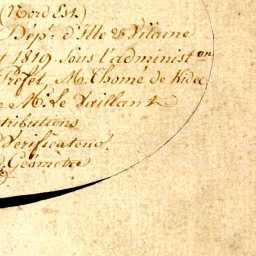 (Nord Est.)
Dép.t d'Ille & Vilaine
1819 Sous l'administ.on
Préfet, M. Thomé de
M.r Le Vaillant
tributions
Vérificateur
Géomètre